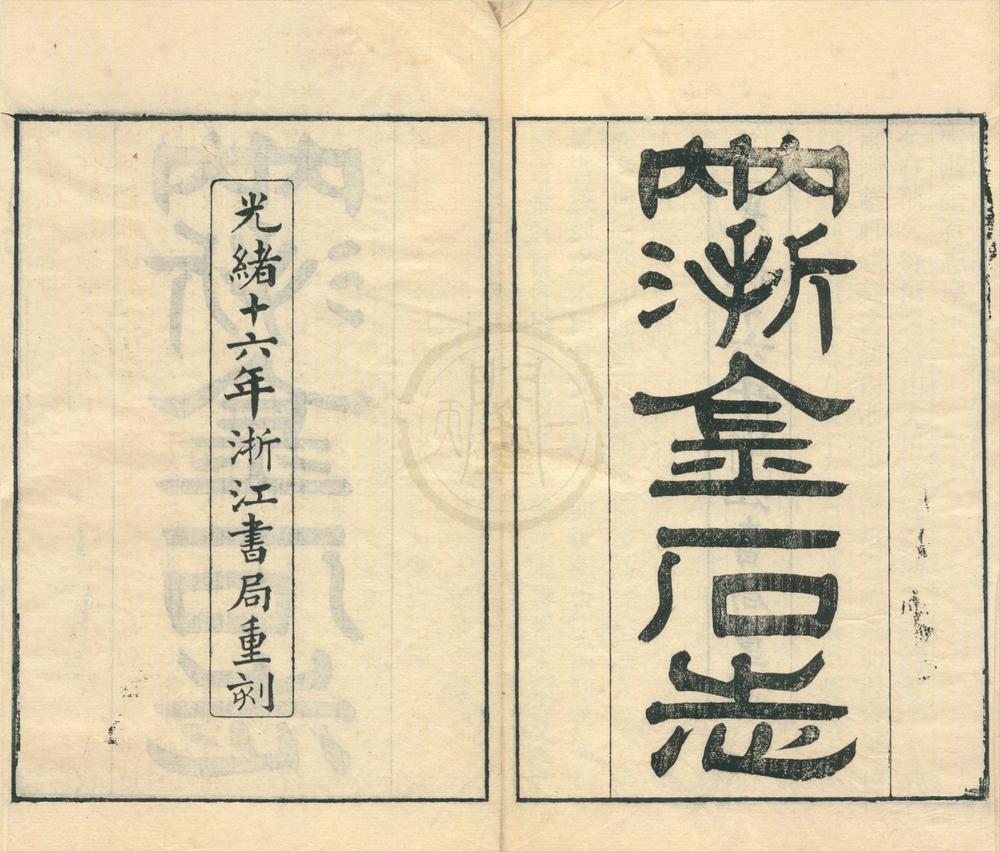 兩浙金石志
光緒十六年浙江書局重刻